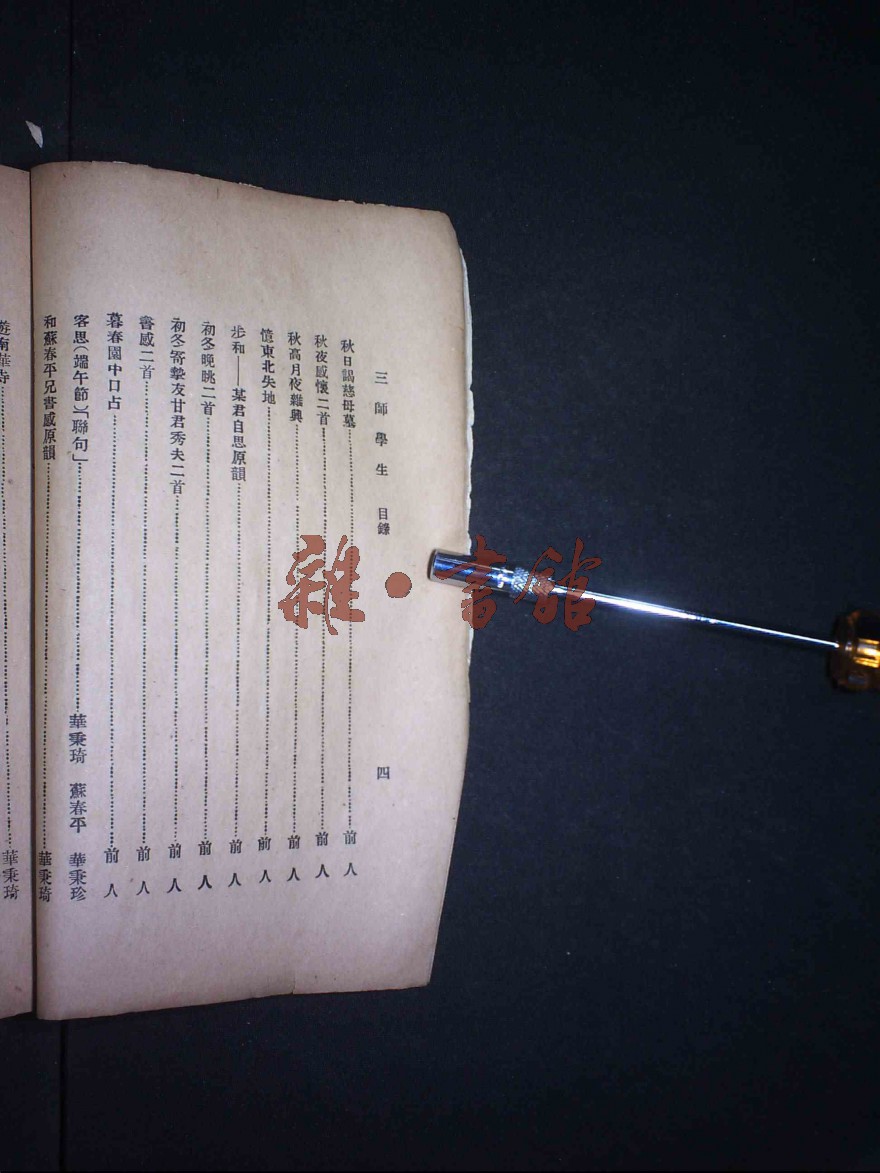 三師學生　目錄　四
秋日謁慈母墓……前人
秋夜感懷二首……前人
秋高月夜雜興……前人
憶東北失地……前人
步和——某君自思原韻……前人
初冬晚眺二首……前人
初冬寄摯友甘君秀夫二首……前人
書感二首……前人
暮春園中口占……前人
客思（端午節）「聯句」……華秉琦　蘇春平　華秉珍
和蘇春平兄書感原韻……華秉琦
遊南華寺……華秉琦
雜·書館